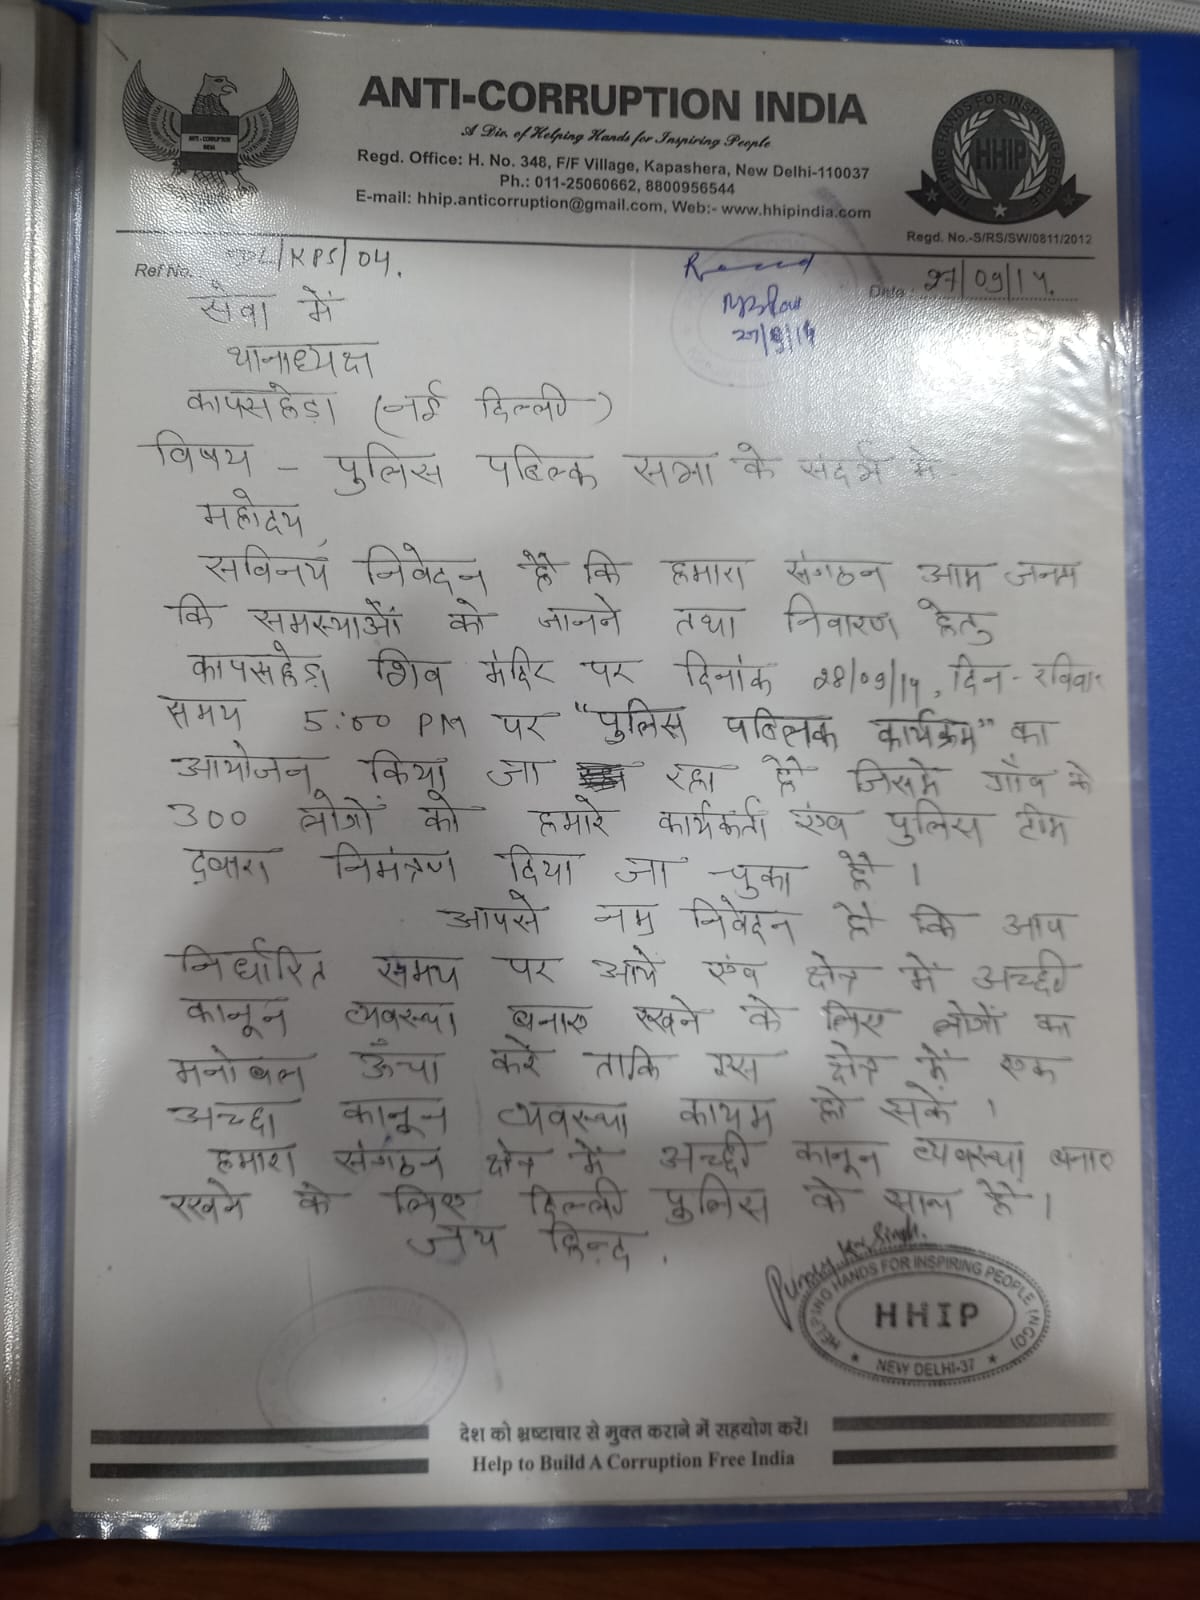 ANTI-CORRUPTION INDIA
A Div. of Helping Hands for Inspiring People
Regd. Office: H. No. 348, F/F Village, Kapashera, New Delhi-110037
Ph.: 011-25060662, 8800956544
E-mail: hhip.anticorruption@gmail.com, Web:- www.hhipindia.com
ANTI - CORRUPTION
INDIA
HELPING HANDS FOR INSPIRING PEOPLE
HHIP
Regd. No.-S/RS/SW/0811/2012
Ref No. /KPS/04.
Date: 27/09/14.
सेवा में
थानाध्यक्ष
कापसहेड़ा (नई दिल्ली)
विषय - पुलिस पब्लिक सभा के संदर्भ में
महोदय,
सविनय निवेदन है कि हमारा संगठन आम जनम
कि समस्याओं को जानने तथा निवारण हेतु
कापसहेड़ा शिव मंदिर पर दिनांक 28/09/14, दिन - रविवार
समय 5:00 PM पर "पुलिस पब्लिक कार्यक्रम" का
आयोजन किया जा रहा है जिसमें गाँव के
300 लोगों को हमारे कार्यकर्ता एंव पुलिस टीम
द्वारा निमंत्रण दिया जा चुका है।
आपसे नम्र निवेदन है कि आप
निर्धारित समय पर आये एंव क्षेत्र में अच्छी
कानून व्यवस्था बनाए रखने के लिए लोगों का
मनोबल ऊँचा करें ताकि इस क्षेत्र में एक
अच्छा कानून व्यवस्था कायम हो सकें।
हमारा संगठन क्षेत्र में अच्छी कानून व्यवस्था बनाए
रखने के लिए दिल्ली पुलिस के साथ है।
जय हिन्द.
HELPING HANDS FOR INSPIRING PEOPLE (NGO)
HHIP
NEW DELHI-37
देश को भ्रष्टाचार से मुक्त कराने में सहयोग करें।
Help to Build A Corruption Free India